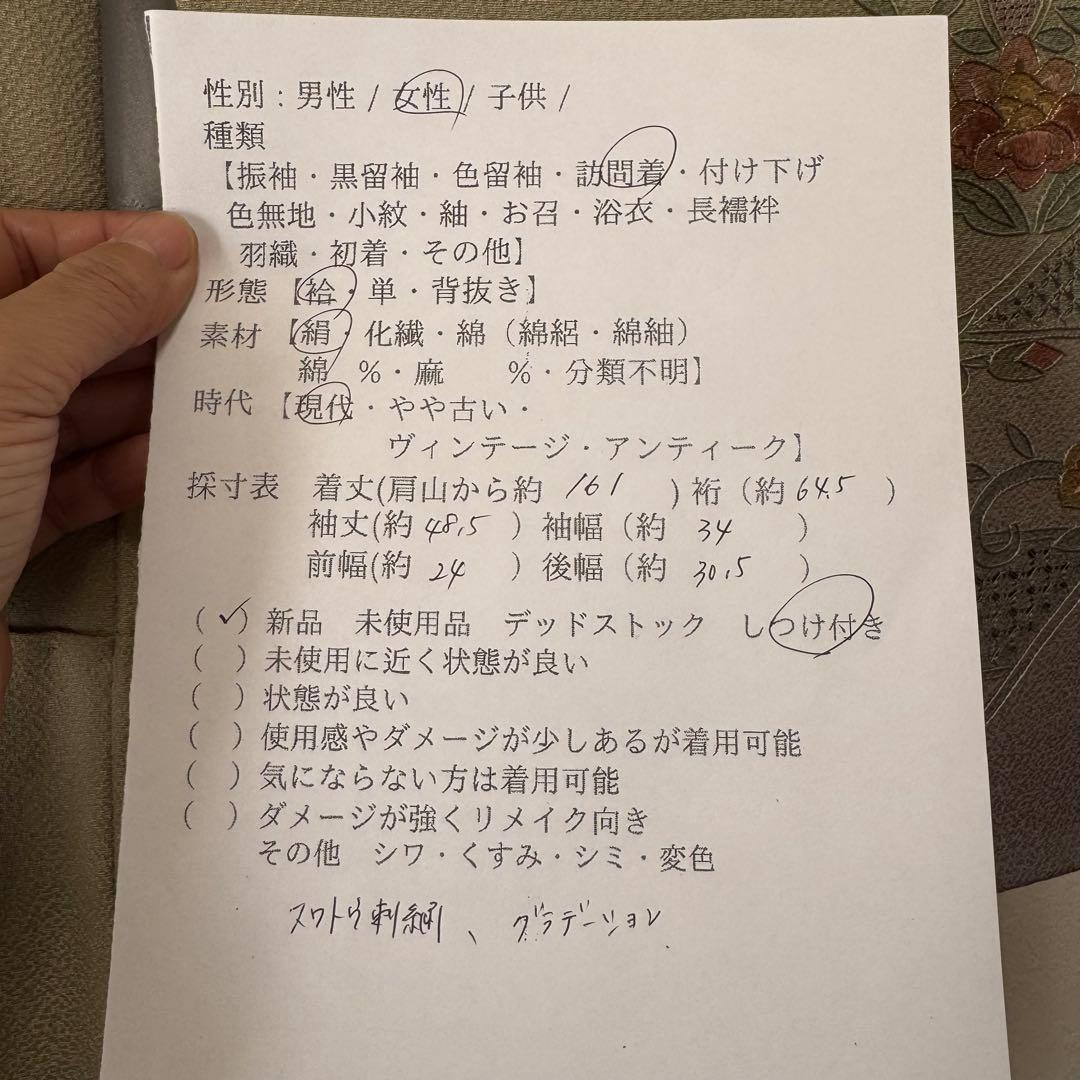 性別：男性 / 女性 / 子供 /
種類
【振袖・黒留袖・色留袖・訪問着・付け下げ
色無地・小紋・紬・お召・浴衣・長襦袢
羽織・初着・その他】
形態 【袷・単・背抜き】
素材 【絹・化繊・綿（綿絽・綿紬）
綿 %・麻 %・分類不明】
時代 【現代・やや古い・
ヴィンテージ・アンティーク】
採寸表 着丈(肩山から約 161 ) 裄（約 64.5 ）
袖丈(約 48.5 ）袖幅（約 34 ）
前幅(約 24 ）後幅（約 30.5 ）
（✓）新品 未使用品 デッドストック しつけ付き
（ ）未使用に近く状態が良い
（ ）状態が良い
（ ）使用感やダメージが少しあるが着用可能
（ ）気にならない方は着用可能
（ ）ダメージが強くリメイク向き
その他 シワ・くすみ・シミ・変色
スワトウ刺繍、グラデーション